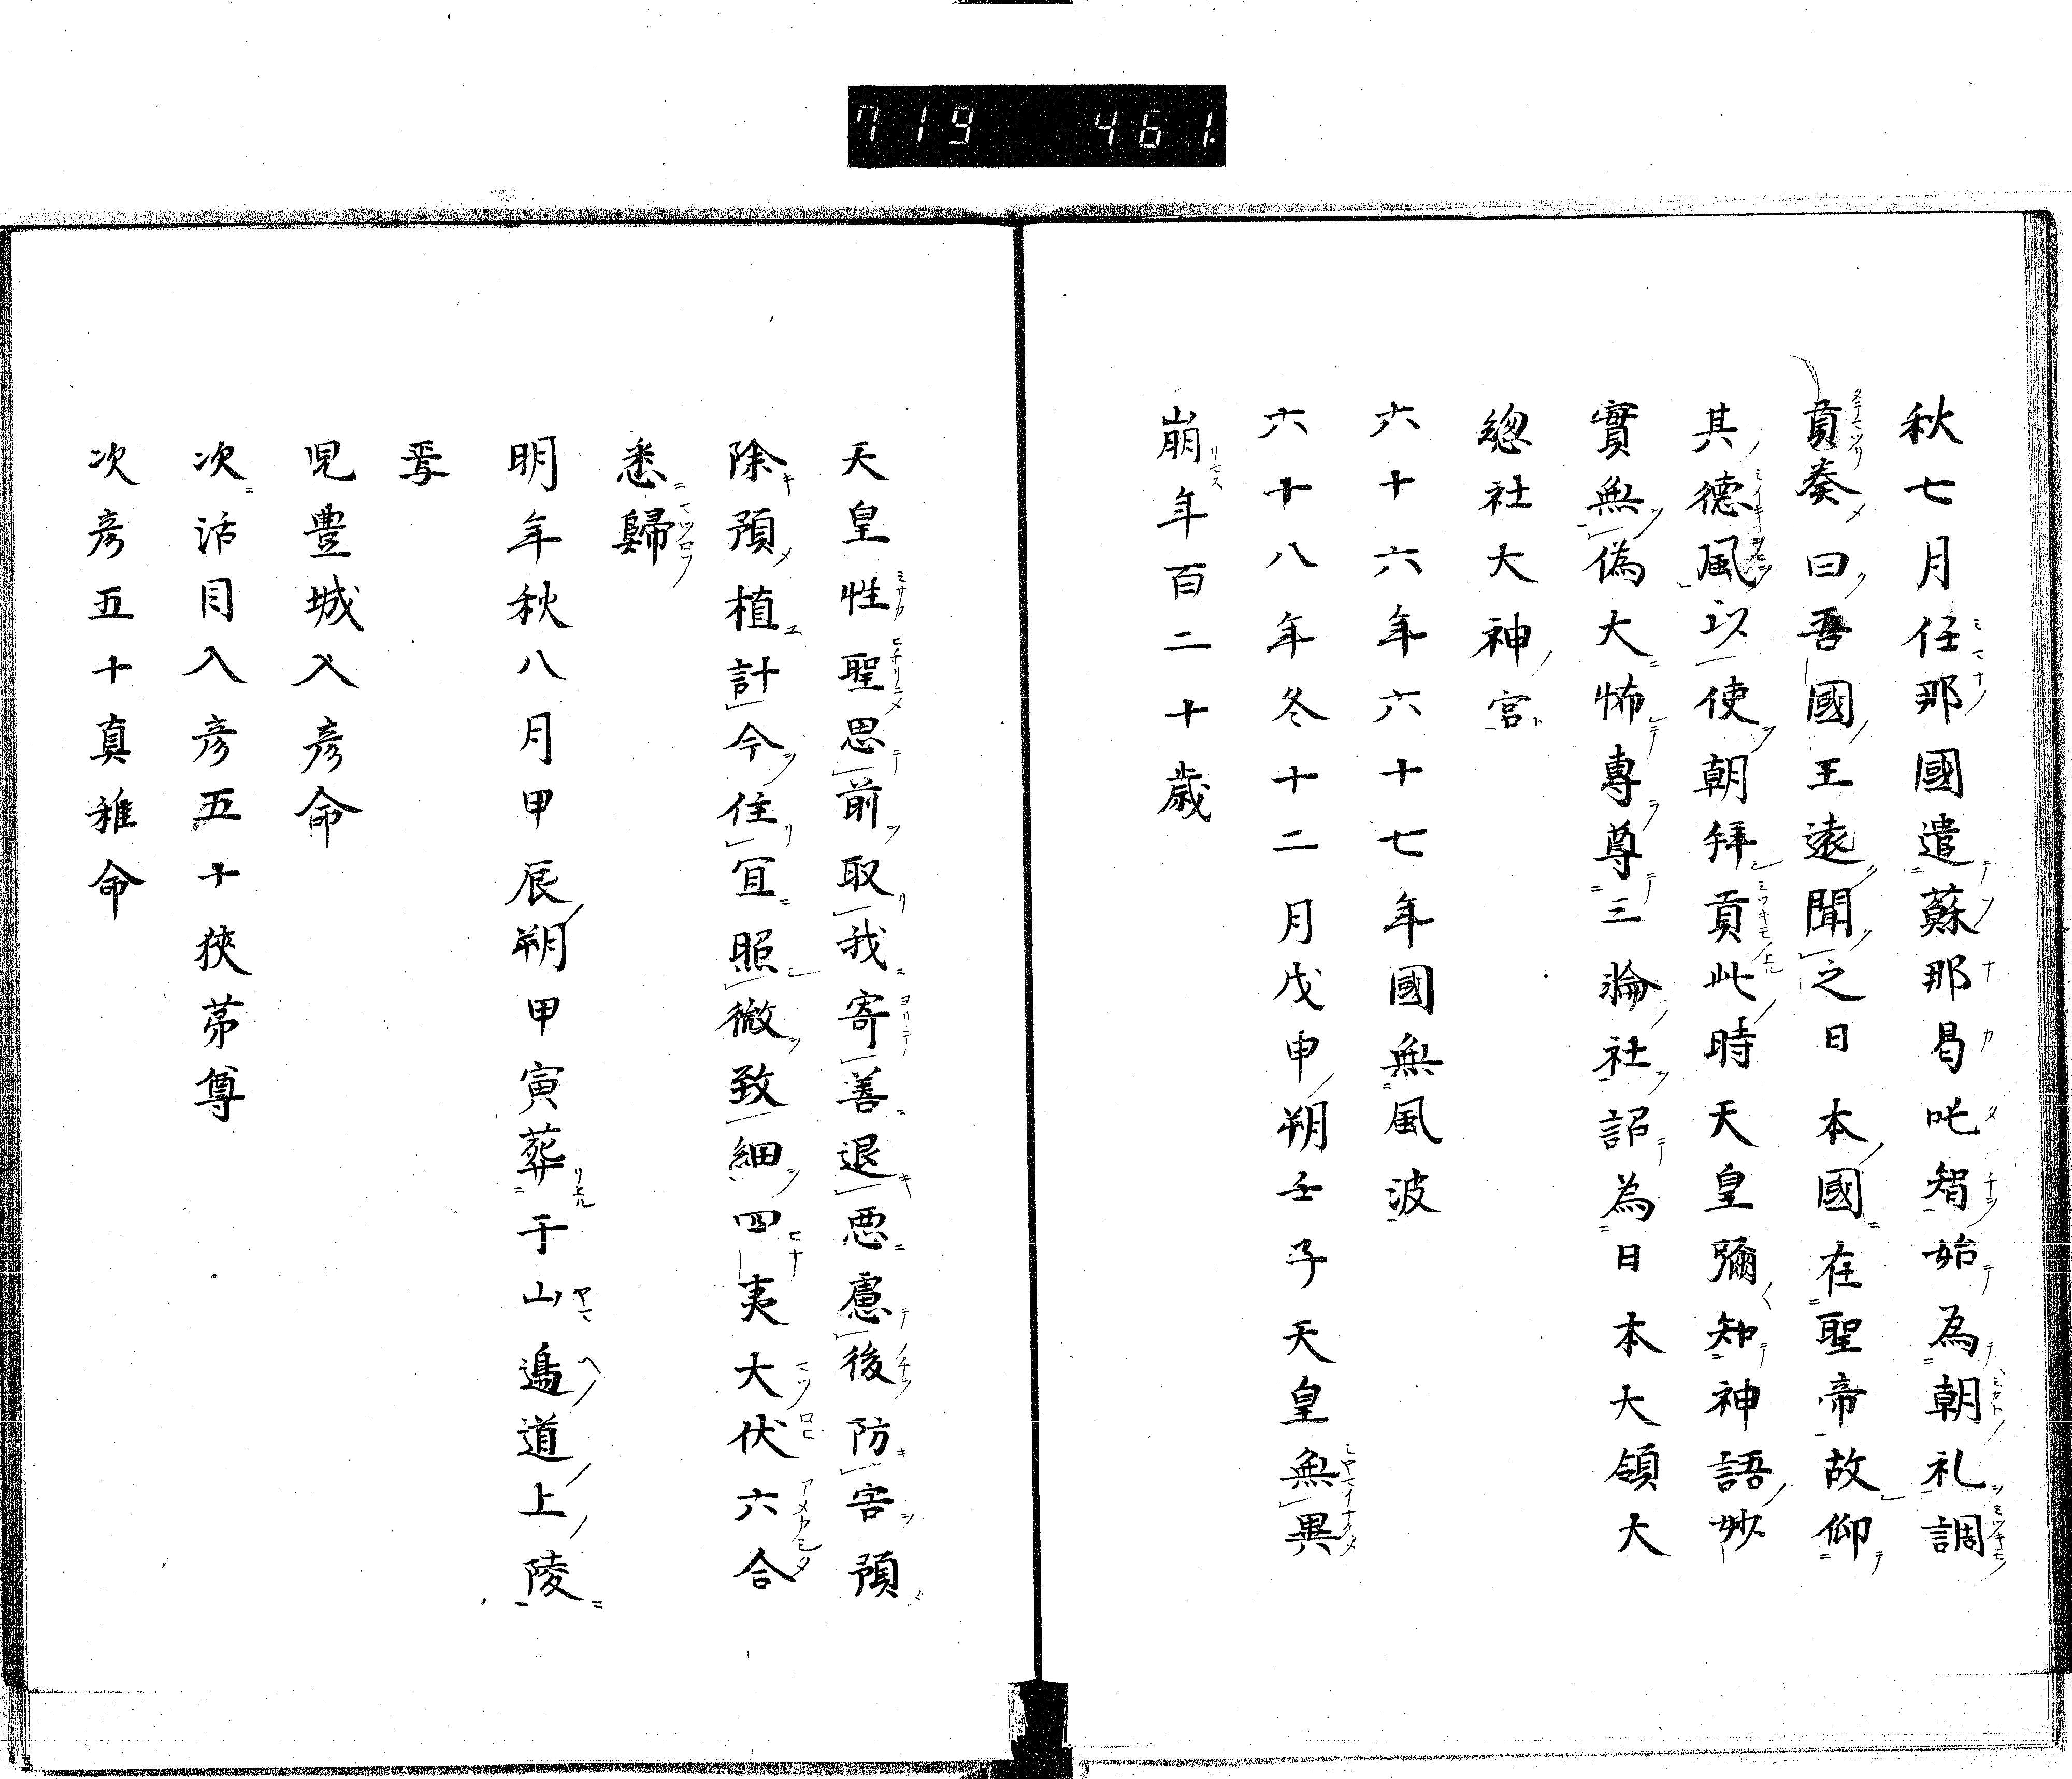 719 461.
秋七月任那國遣蘇那曷叱智始為朝礼調
貢奏曰吾國王遠聞之日本國在聖帝故仰
其德風以使朝拜貢此時天皇彌知神語妙
實無偽大怖專尊三淪社詔為日本大領大
總社大神宮
六十六年六十七年國無風波
六十八年冬十二月戊申朔壬子天皇無異
崩年百二十歳
天皇性聖思前取我寄善退悪慮後防害預
除預植計今住宜照微致細四夷大伏六合
悉歸
明年秋八月甲辰朔甲寅葬于山邊道上陵
焉
兒豊城入彦命
次活目入彦五十狹茅尊
次彦五十真稚命